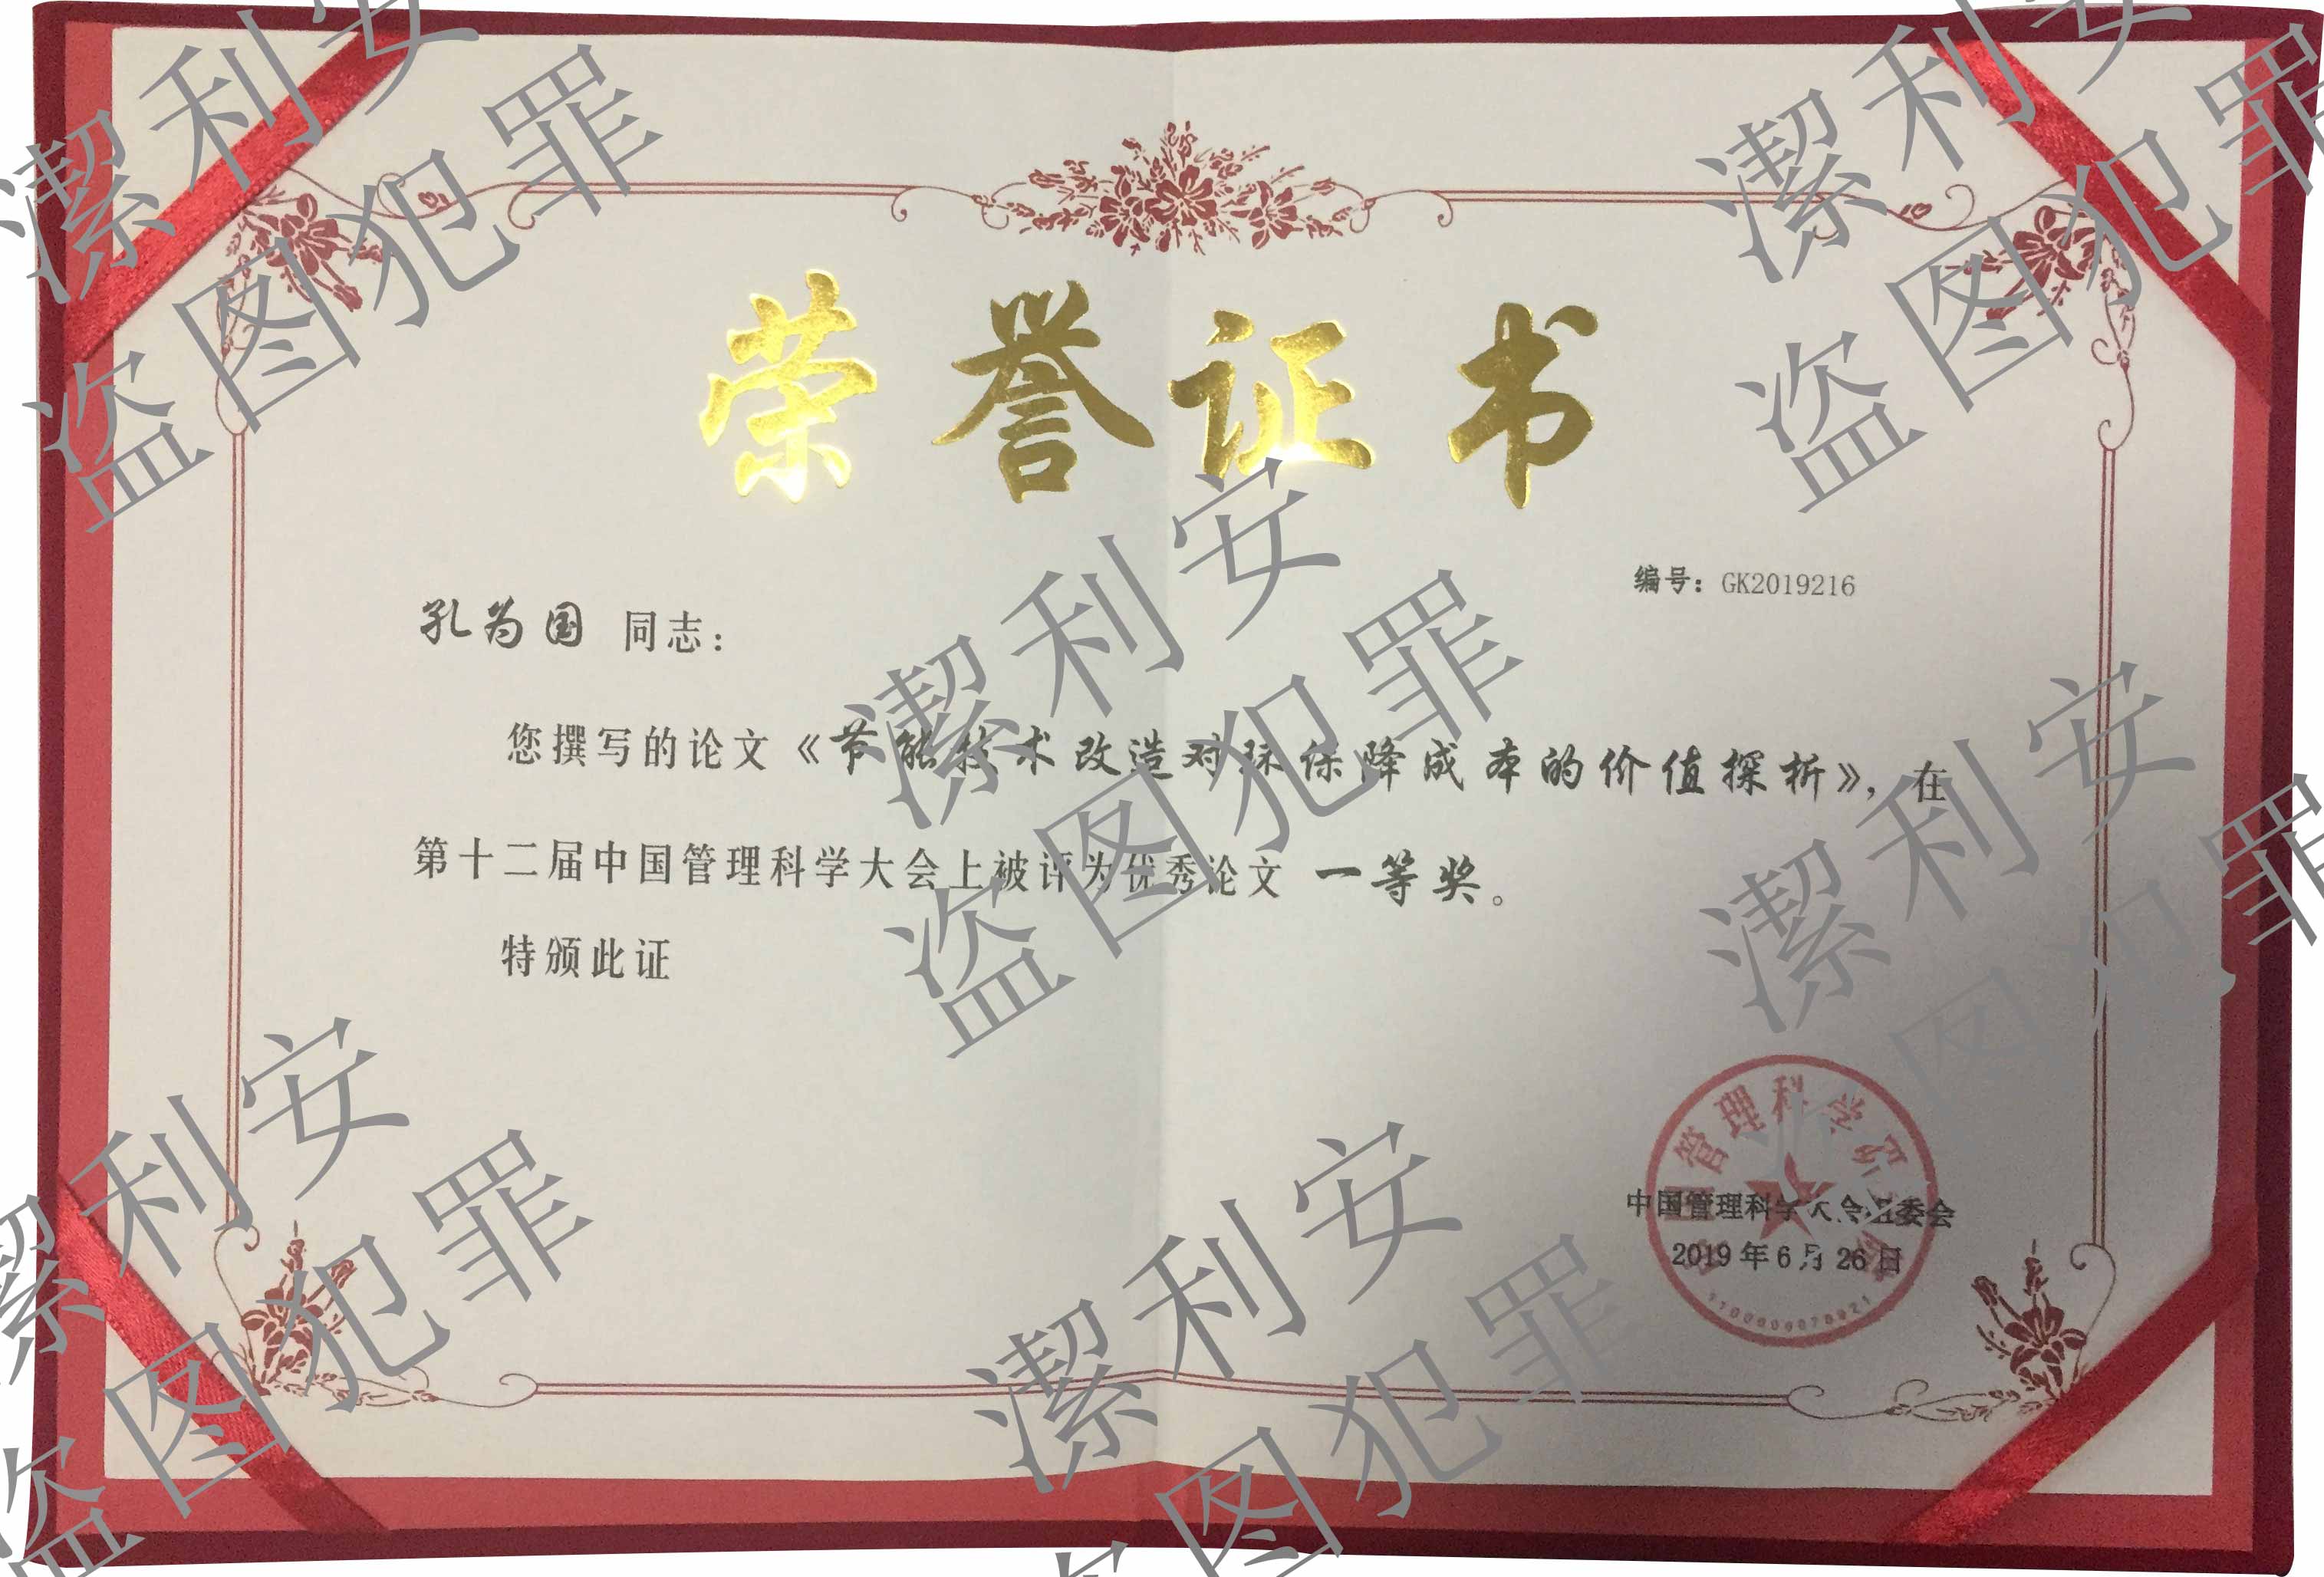 荣誉证书
编号：GK2019216
孔为国 同志：
您撰写的论文《节能技术改造对环保降成本的价值探析》，在
第十二届中国管理科学大会上被评为优秀论文 一等奖。
特颁此证
中国管理科学大会组委会
2019年6月26日
潔利安
盗图犯罪
潔利安
盗图犯罪
潔利安
盗图犯罪
潔利安
图犯罪
潔利安
盗图犯罪
潔利安
盗图犯罪